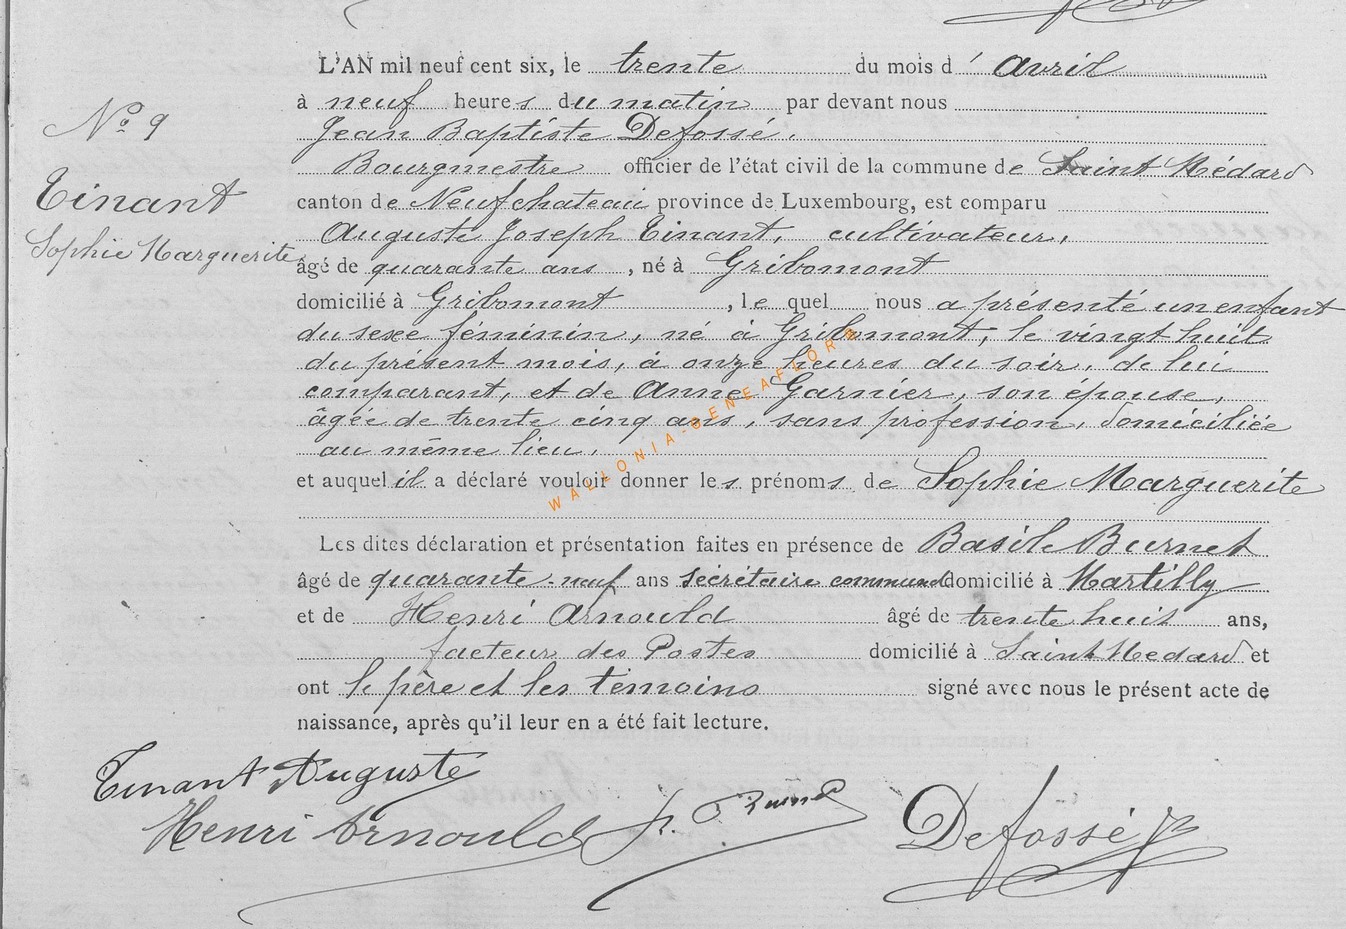 L'AN mil neuf cent six, le trente du mois d' avril
à neuf heures du matin par devant nous
Jean Baptiste Defossé.
Bourgmestre officier de l'état civil de la commune de Saint Médard
canton de Neufchateau province de Luxembourg, est comparu
Auguste Joseph Tinant, cultivateur,
âgé de quarante ans , né à Gribomont
domicilié à Gribomont , le quel nous a présenté un enfant
du sexe féminin, né à Gribomont, le vingt huit
du présent mois, à onze heures du soir, de lui
comparant, et de Anne Garnier, son épouse,
âgée de trente cinq ans, sans profession, domiciliée
au même lieu,
et auquel il a déclaré vouloir donner les prénoms de Sophie Marguerite
Les dites déclaration et présentation faites en présence de Basile Burnet
âgé de quarante-neuf ans secrétaire communal domicilié à Martilly
et de Henri Arnould âgé de trente huit ans,
facteur des Postes domicilié à Saint Médard et
ont le père et les témoins signé avec nous le présent acte de
naissance, après qu'il leur en a été fait lecture.
N° 9
Tinant
Sophie Marguerite
Tinant Auguste
Henri Arnould
Burnet
Defossé JB
WALLONIA-GENEAFLORE